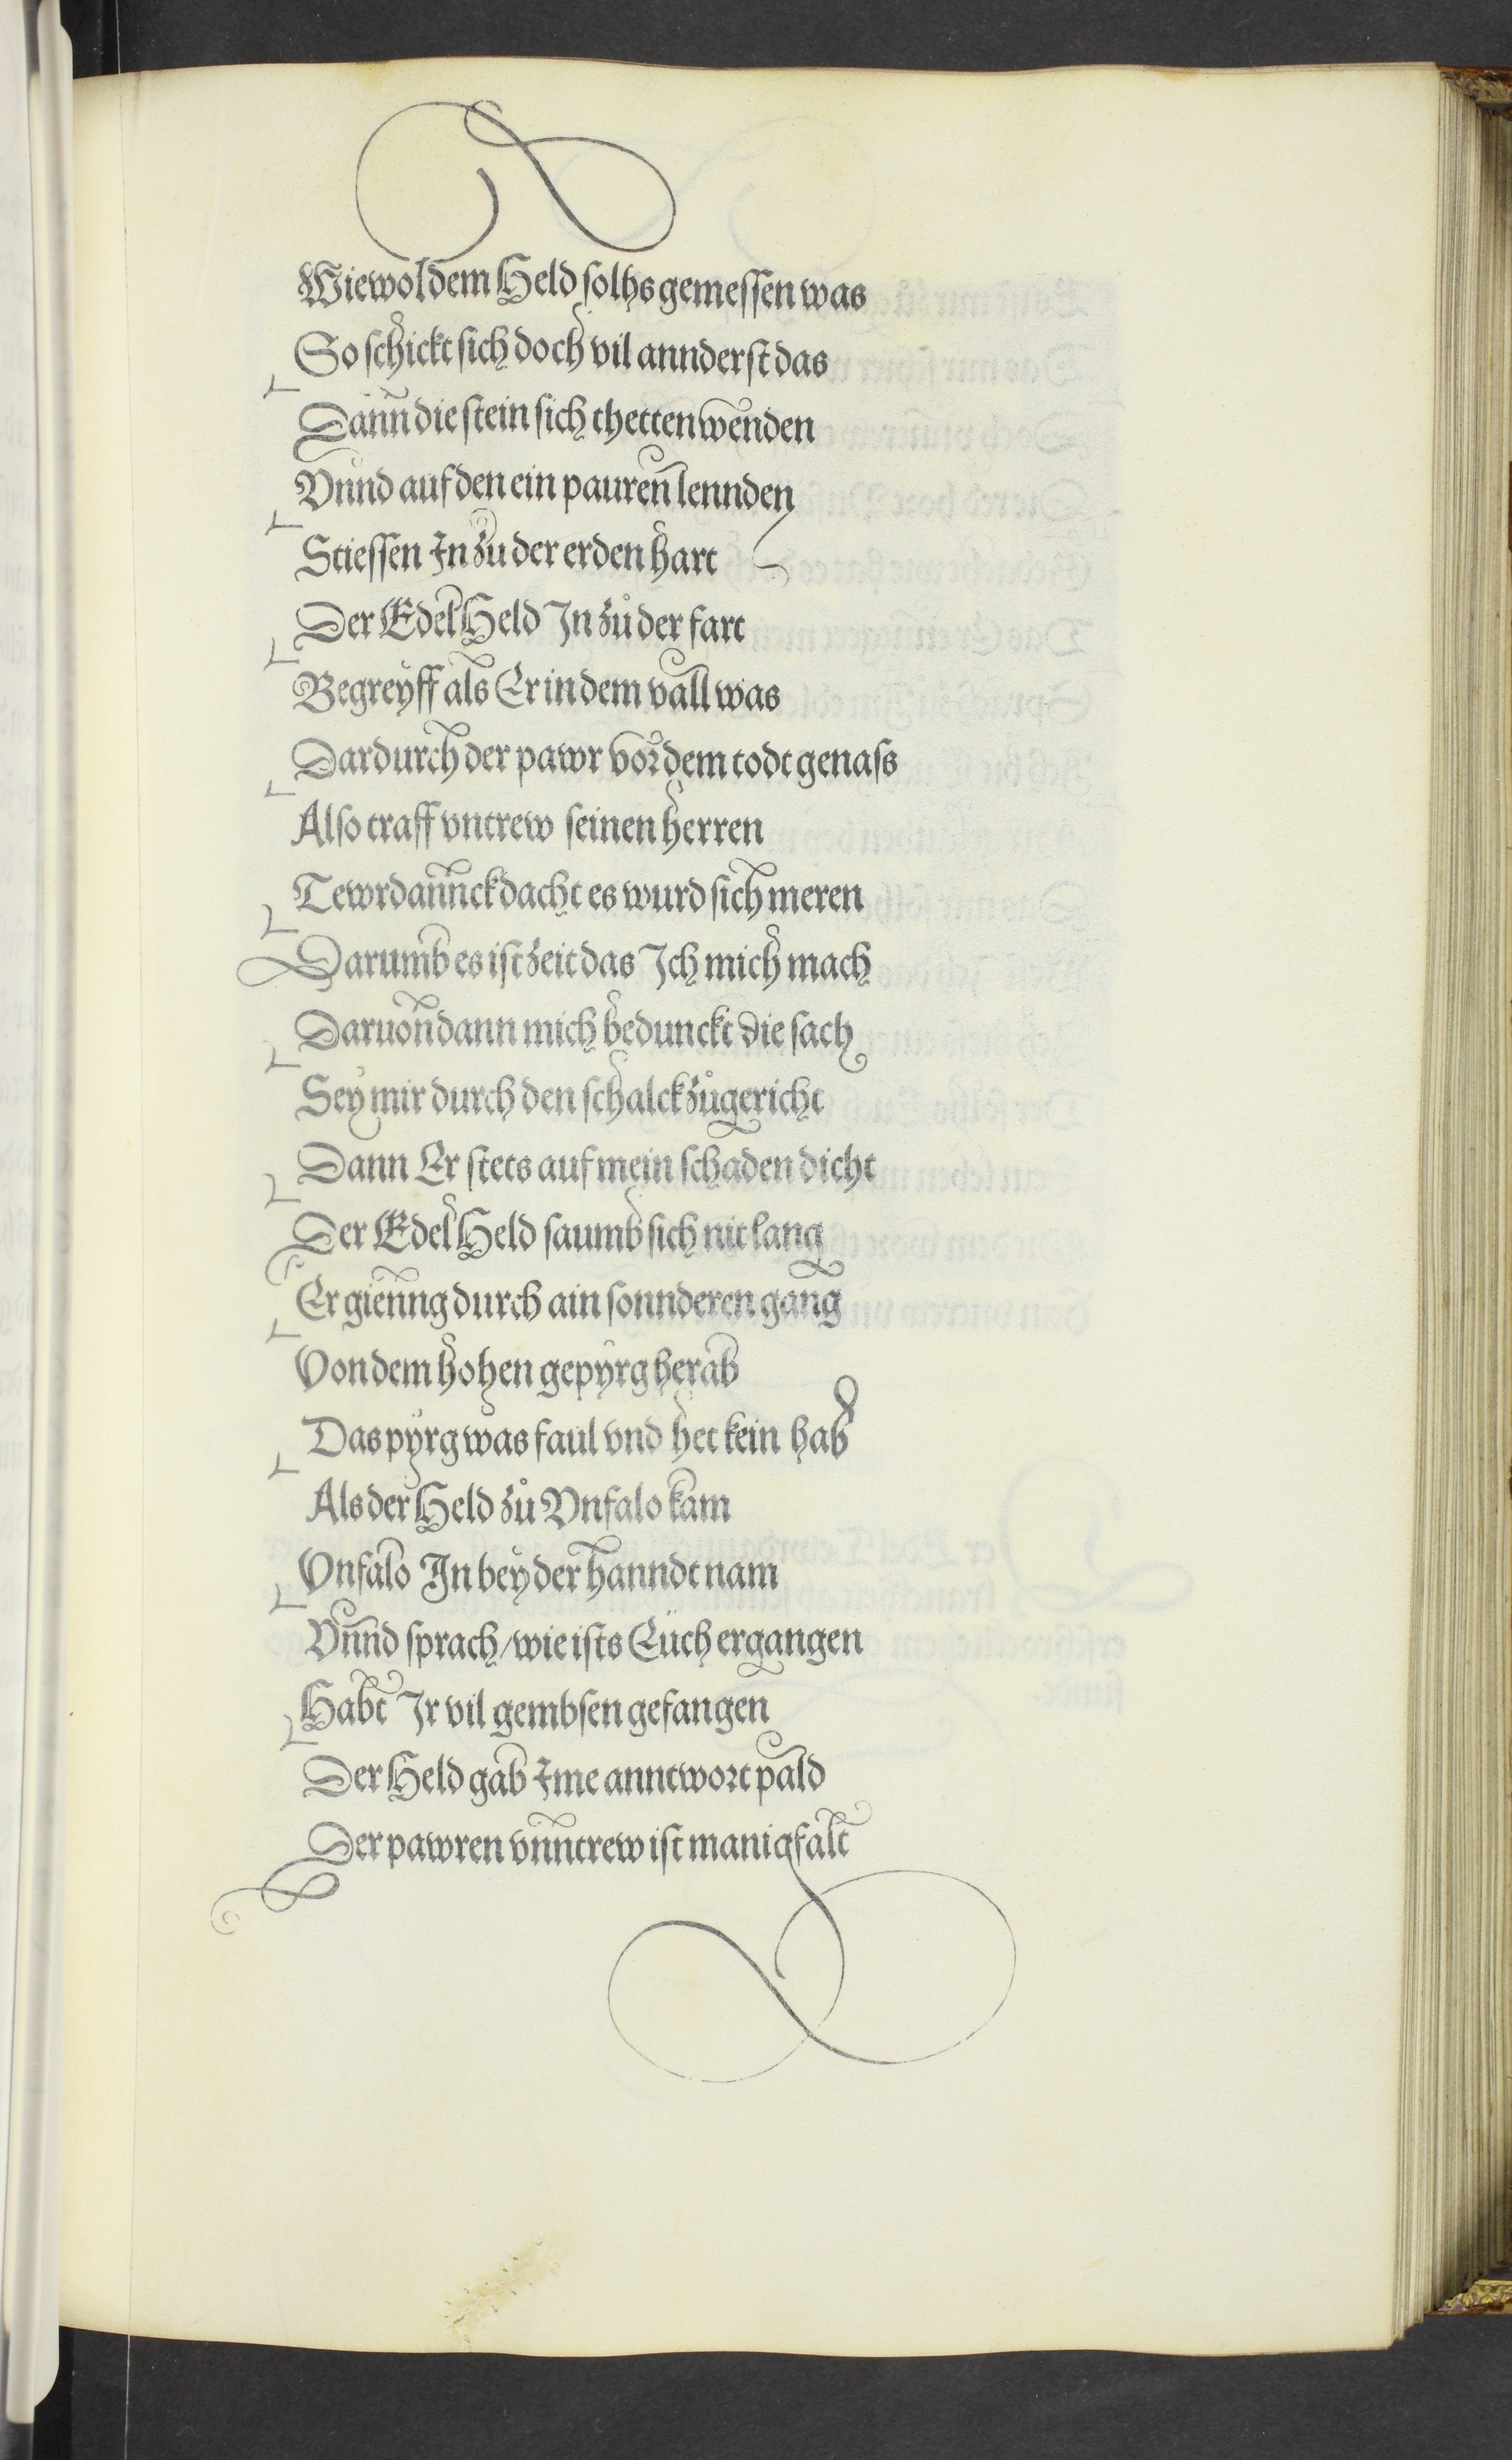 Wiewol dem Held solhs gemessen was
So schickt sich doch vil annderst das
Dann die stein sich thetten wenden
Vnnd auf den ein pauren lennden
Stiessen In zu der erden hart
Der Edel Held In zů der fart
Begreyff als Er in dem vall was
Dardurch der pawr vor dem todt genass
Also traff vntrew seinen herren
Tewrdannck dacht es wurd sich meren
Darumb es ist zeit das Ich mich mach
Daruon dann mich bedunckt die sach
Sey mir durch den schalck zůgericht
Dann Er stets auf mein schaden dicht
Der Edel Held saumb sich nit lang
Er gienng durch ain sonnderen gang
Von dem hohen gepyrg herab
Das pyrg was faul vnd het kein hab
Als der Held zů Vnfalo kam
Vnfalo In bey der hanndt nam
Vnnd sprach / wie ists Eüch ergangen
Habt Ir vil gembsen gefangen
Der Held gab Ime anntwort pald
Der pawren vnntrew ist manigfalt